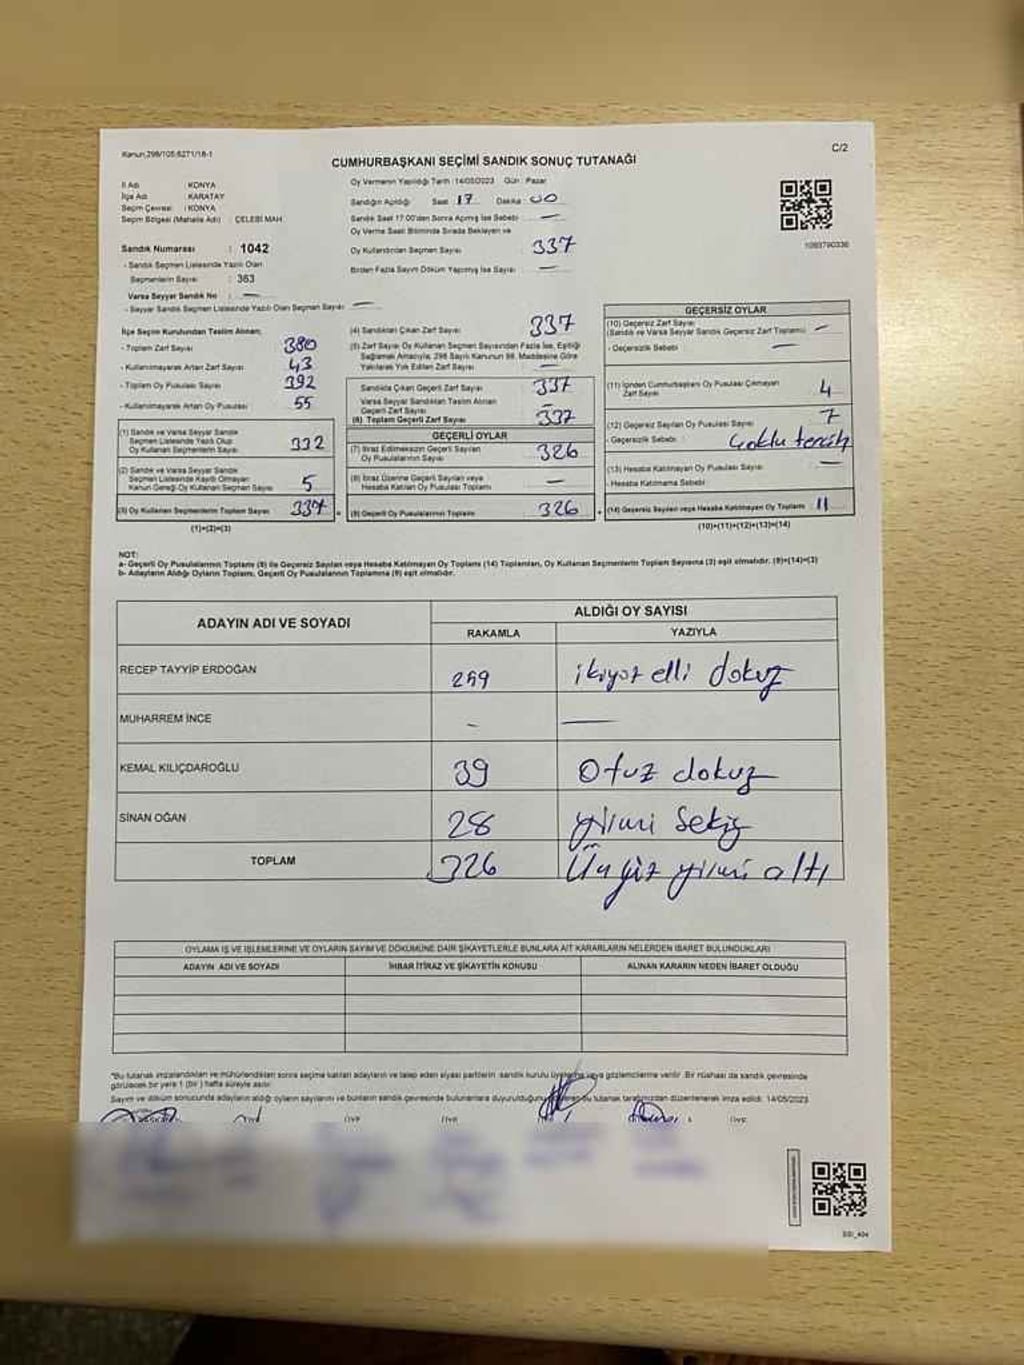 Kanun;298/105;6271/18-1
C/2
CUMHURBAŞKANI SEÇİMİ SANDIK SONUÇ TUTANAĞI
İl Adı : KONYA
İlçe Adı : KARATAY
Seçim Çevresi : KONYA
Seçim Bölgesi (Mahalle Adı) : ÇELEBİ MAH.
Sandık Numarası : 1042
- Sandık Seçmen Listesinde Yazılı Olan
Seçmenlerin Sayısı : 363
Varsa Seyyar Sandık No : —
- Seyyar Sandık Seçmen Listesinde Yazılı Olan Seçmen Sayısı : —
Oy Vermenin Yapıldığı Tarih :14/05/2023 Gün : Pazar
Sandığın Açıldığı Saat 17 Dakika 00
Sandık Saat 17:00'den Sonra Açılmış İse Sebebi : —
Oy Verme Saati Bitiminde Sırada Bekleyen ve
Oy Kullandırılan Seçmen Sayısı : 337
Birden Fazla Sayım Döküm Yapılmış İse Sayısı : —
1093790336
İlçe Seçim Kurulundan Teslim Alınan;
- Toplam Zarf Sayısı : 380
- Kullanılmayarak Artan Zarf Sayısı : 43
- Toplam Oy Pusulası Sayısı : 392
- Kullanılmayarak Artan Oy Pusulası : 55
(1) Sandık ve Varsa Seyyar Sandık
Seçmen Listesinde Yazılı Olup
Oy Kullanan Seçmenlerin Sayısı : 332
(2) Sandık ve Varsa Seyyar Sandık
Seçmen Listesinde Kayıtlı Olmayan
Kanun Gereği Oy Kullanan Seçmen Sayısı : 5
(3) Oy Kullanan Seçmenlerin Toplam Sayısı : 337 =
(1)+(2)=(3)
(4) Sandıktan Çıkan Zarf Sayısı : 337
(5) Zarf Sayısı Oy Kullanan Seçmen Sayısından Fazla İse, Eşitliği
Sağlamak Amacıyla, 298 Sayılı Kanunun 98. Maddesine Göre
Yakılarak Yok Edilen Zarf Sayısı : —
Sandıkta Çıkan Geçerli Zarf Sayısı : 337
Varsa Seyyar Sandıktan Teslim Alınan
Geçerli Zarf Sayısı : —
(6) Toplam Geçerli Zarf Sayısı : 337
GEÇERLİ OYLAR
(7) İtiraz Edilmeksizin Geçerli Sayılan
Oy Pusulalarının Sayısı : 326
(8) İtiraz Üzerine Geçerli Sayılan veya
Hesaba Katılan Oy Pusulası Toplamı : —
(9) Geçerli Oy Pusulalarının Toplamı : 326 +
GEÇERSİZ OYLAR
(10) Geçersiz Zarf Sayısı :
(Sandık ve Varsa Seyyar Sandık Geçersiz Zarf Toplamı) —
- Geçersizlik Sebebi : —
(11) İçinden Cumhurbaşkanı Oy Pusulası Çıkmayan
Zarf Sayısı : 4
(12) Geçersiz Sayılan Oy Pusulası Sayısı : 7
- Geçersizlik Sebebi : Çoklu tercih
(13) Hesaba Katılmayan Oy Pusulası Sayısı : —
- Hesaba Katılmama Sebebi :
(14) Geçersiz Sayılan veya Hesaba Katılmayan Oy Toplamı : 11
(10)+(11)+(12)+(13)=(14)
NOT:
a- Geçerli Oy Pusulasının Toplamı (9) ile Geçersiz Sayılan veya Hesaba Katılmayan Oy Toplamı (14) Toplamları, Oy Kullanan Seçmenlerin Toplam Sayısına (3) eşit olmalıdır. (9)+(14)=(3)
b- Adayların Aldığı Oyların Toplamı, Geçerli Oy Pusulalarının Toplamına (9) eşit olmalıdır.
ADAYIN ADI VE SOYADI
ALDIĞI OY SAYISI
RAKAMLA YAZIYLA
RECEP TAYYİP ERDOĞAN 259 ikiyüz elli dokuz
MUHARREM İNCE - —
KEMAL KILIÇDAROĞLU 39 Otuz dokuz
SİNAN OĞAN 28 yirmi Sekiz
TOPLAM 326 Üçyüz yirmi altı
OYLAMA İŞ VE İŞLEMLERİNE VE OYLARIN SAYIM VE DÖKÜMÜNE DAİR ŞİKAYETLERLE BUNLARA AİT KARARLARIN NELERDEN İBARET BULUNDUKLARI
ADAYIN ADI VE SOYADI İHBAR İTİRAZ VE ŞİKAYETİN KONUSU ALINAN KARARIN NEDEN İBARET OLDUĞU
"Bu tutanak imzalandıktan ve mühürlendikten sonra seçime katılan adayların ve talep eden siyasi partilerin sandık kurulu üyelerine veya gözlemcilerine verilir. Bir nüshası da sandık çevresinde
görülecek bir yere 1 (bir ) hafta süreyle asılır.
Sayım ve döküm sonucunda adayların aldığı oyların sayılarını ve bunların sandık çevresinde bulunanlara duyurulduğunu bu tutanak tarafımızdan düzenlenerek imza edildi. 14/05/2023
ÜYE ÜYE ÜYE